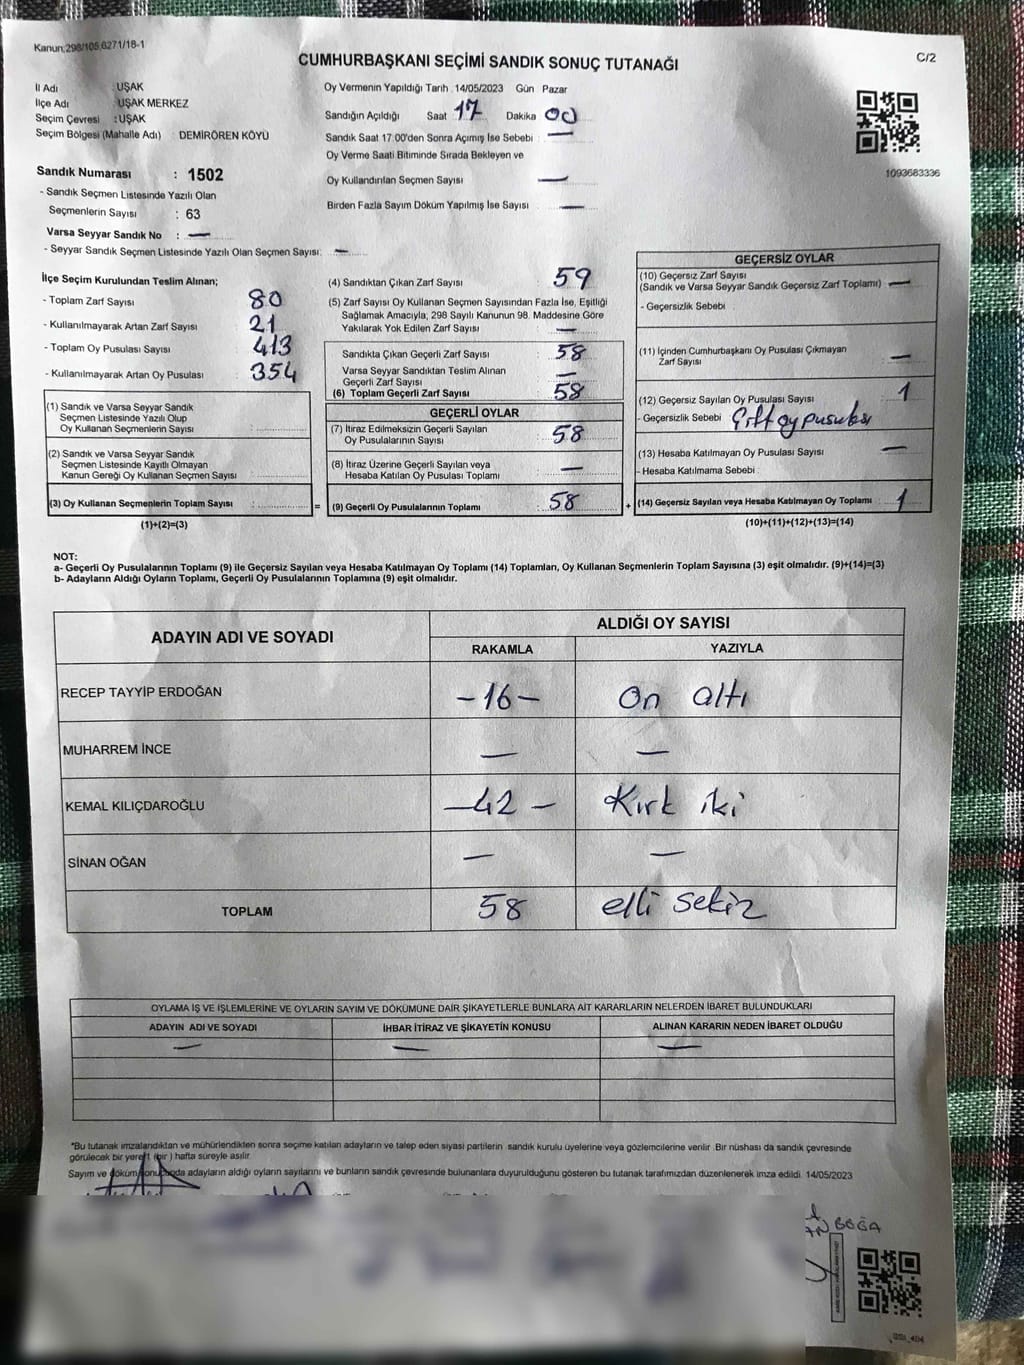 Kanun;298/105,6271/18-1
C/2
CUMHURBAŞKANI SEÇİMİ SANDIK SONUÇ TUTANAĞI
İl Adı : UŞAK
İlçe Adı : UŞAK MERKEZ
Seçim Çevresi : UŞAK
Seçim Bölgesi (Mahalle Adı) : DEMİRÖREN KÖYÜ
Oy Vermenin Yapıldığı Tarih : 14/05/2023 Gün Pazar
Sandığın Açıldığı Saat 17 Dakika 00
Sandık Saat 17:00'den Sonra Açımış İse Sebebi : —
Oy Verme Saati Bitiminde Sırada Bekleyen ve
Oy Kullandırılan Seçmen Sayısı : —
Birden Fazla Sayım Döküm Yapılmış İse Sayısı : —
1093683336
Sandık Numarası : 1502
- Sandık Seçmen Listesinde Yazılı Olan
Seçmenlerin Sayısı : 63
Varsa Seyyar Sandık No : —
- Seyyar Sandık Seçmen Listesinde Yazılı Olan Seçmen Sayısı: —
İlçe Seçim Kurulundan Teslim Alınan;
- Toplam Zarf Sayısı : 80
- Kullanılmayarak Artan Zarf Sayısı : 21
- Toplam Oy Pusulası Sayısı : 413
- Kullanılmayarak Artan Oy Pusulası : 354
(1) Sandık ve Varsa Seyyar Sandık
Seçmen Listesinde Yazılı Olup
Oy Kullanan Seçmenlerin Sayısı :
(2) Sandık ve Varsa Seyyar Sandık
Seçmen Listesinde Kayıtlı Olmayan
Kanun Gereği Oy Kullanan Seçmen Sayısı :
(3) Oy Kullanan Seçmenlerin Toplam Sayısı : =
(1)+(2)=(3)
(4) Sandıktan Çıkan Zarf Sayısı : 59
(5) Zarf Sayısı Oy Kullanan Seçmen Sayısından Fazla İse, Eşitliği
Sağlamak Amacıyla; 298 Sayılı Kanunun 98. Maddesine Göre
Yakılarak Yok Edilen Zarf Sayısı : —
Sandıkta Çıkan Geçerli Zarf Sayısı : 58
Varsa Seyyar Sandıktan Teslim Alınan
Geçerli Zarf Sayısı : —
(6) Toplam Geçerli Zarf Sayısı : 58
GEÇERLİ OYLAR
(7) İtiraz Edilmeksizin Geçerli Sayılan
Oy Pusulalarının Sayısı : 58
(8) İtiraz Üzerine Geçerli Sayılan veya
Hesaba Katılan Oy Pusulası Toplamı : —
(9) Geçerli Oy Pusulalarının Toplamı : 58 +
GEÇERSİZ OYLAR
(10) Geçersiz Zarf Sayısı
(Sandık ve Varsa Seyyar Sandık Geçersiz Zarf Toplamı) : —
- Geçersizlik Sebebi :
(11) İçinden Cumhurbaşkanı Oy Pusulası Çıkmayan
Zarf Sayısı : —
(12) Geçersiz Sayılan Oy Pusulası Sayısı : 1
- Geçersizlik Sebebi : Çift oy pusulası
(13) Hesaba Katılmayan Oy Pusulası Sayısı : —
- Hesaba Katılmama Sebebi :
(14) Geçersiz Sayılan veya Hesaba Katılmayan Oy Toplamı : 1
(10)+(11)+(12)+(13)=(14)
NOT:
a- Geçerli Oy Pusulalarının Toplamı (9) ile Geçersiz Sayılan veya Hesaba Katılmayan Oy Toplamı (14) Toplamları, Oy Kullanan Seçmenlerin Toplam Sayısına (3) eşit olmalıdır. (9)+(14)=(3)
b- Adayların Aldığı Oyların Toplamı, Geçerli Oy Pusulalarının Toplamına (9) eşit olmalıdır.
ADAYIN ADI VE SOYADI
ALDIĞI OY SAYISI
RAKAMLA YAZIYLA
RECEP TAYYİP ERDOĞAN -16- On altı
MUHARREM İNCE — —
KEMAL KILIÇDAROĞLU -42- Kırk iki
SİNAN OĞAN — —
TOPLAM 58 elli sekiz
OYLAMA İŞ VE İŞLEMLERİNE VE OYLARIN SAYIM VE DÖKÜMÜNE DAİR ŞİKAYETLERLE BUNLARA AİT KARARLARIN NELERDEN İBARET BULUNDUKLARI
ADAYIN ADI VE SOYADI İHBAR İTİRAZ VE ŞİKAYETİN KONUSU ALINAN KARARIN NEDEN İBARET OLDUĞU
— — —
*Bu tutanak imzalandıktan ve mühürlendikten sonra seçime katılan adayların ve talep eden siyasi partilerin sandık kurulu üyelerine veya gözlemcilerine verilir. Bir nüshası da sandık çevresinde
görülecek bir yere 1 (bir) hafta süreyle asılır.
Sayım ve döküm sonucunda adayların aldığı oyların sayılarını ve bunların sandık çevresinde bulunanlara duyurulduğunu gösteren bu tutanak tarafımızdan düzenlenerek imza edildi. 14/05/2023
BOĞA